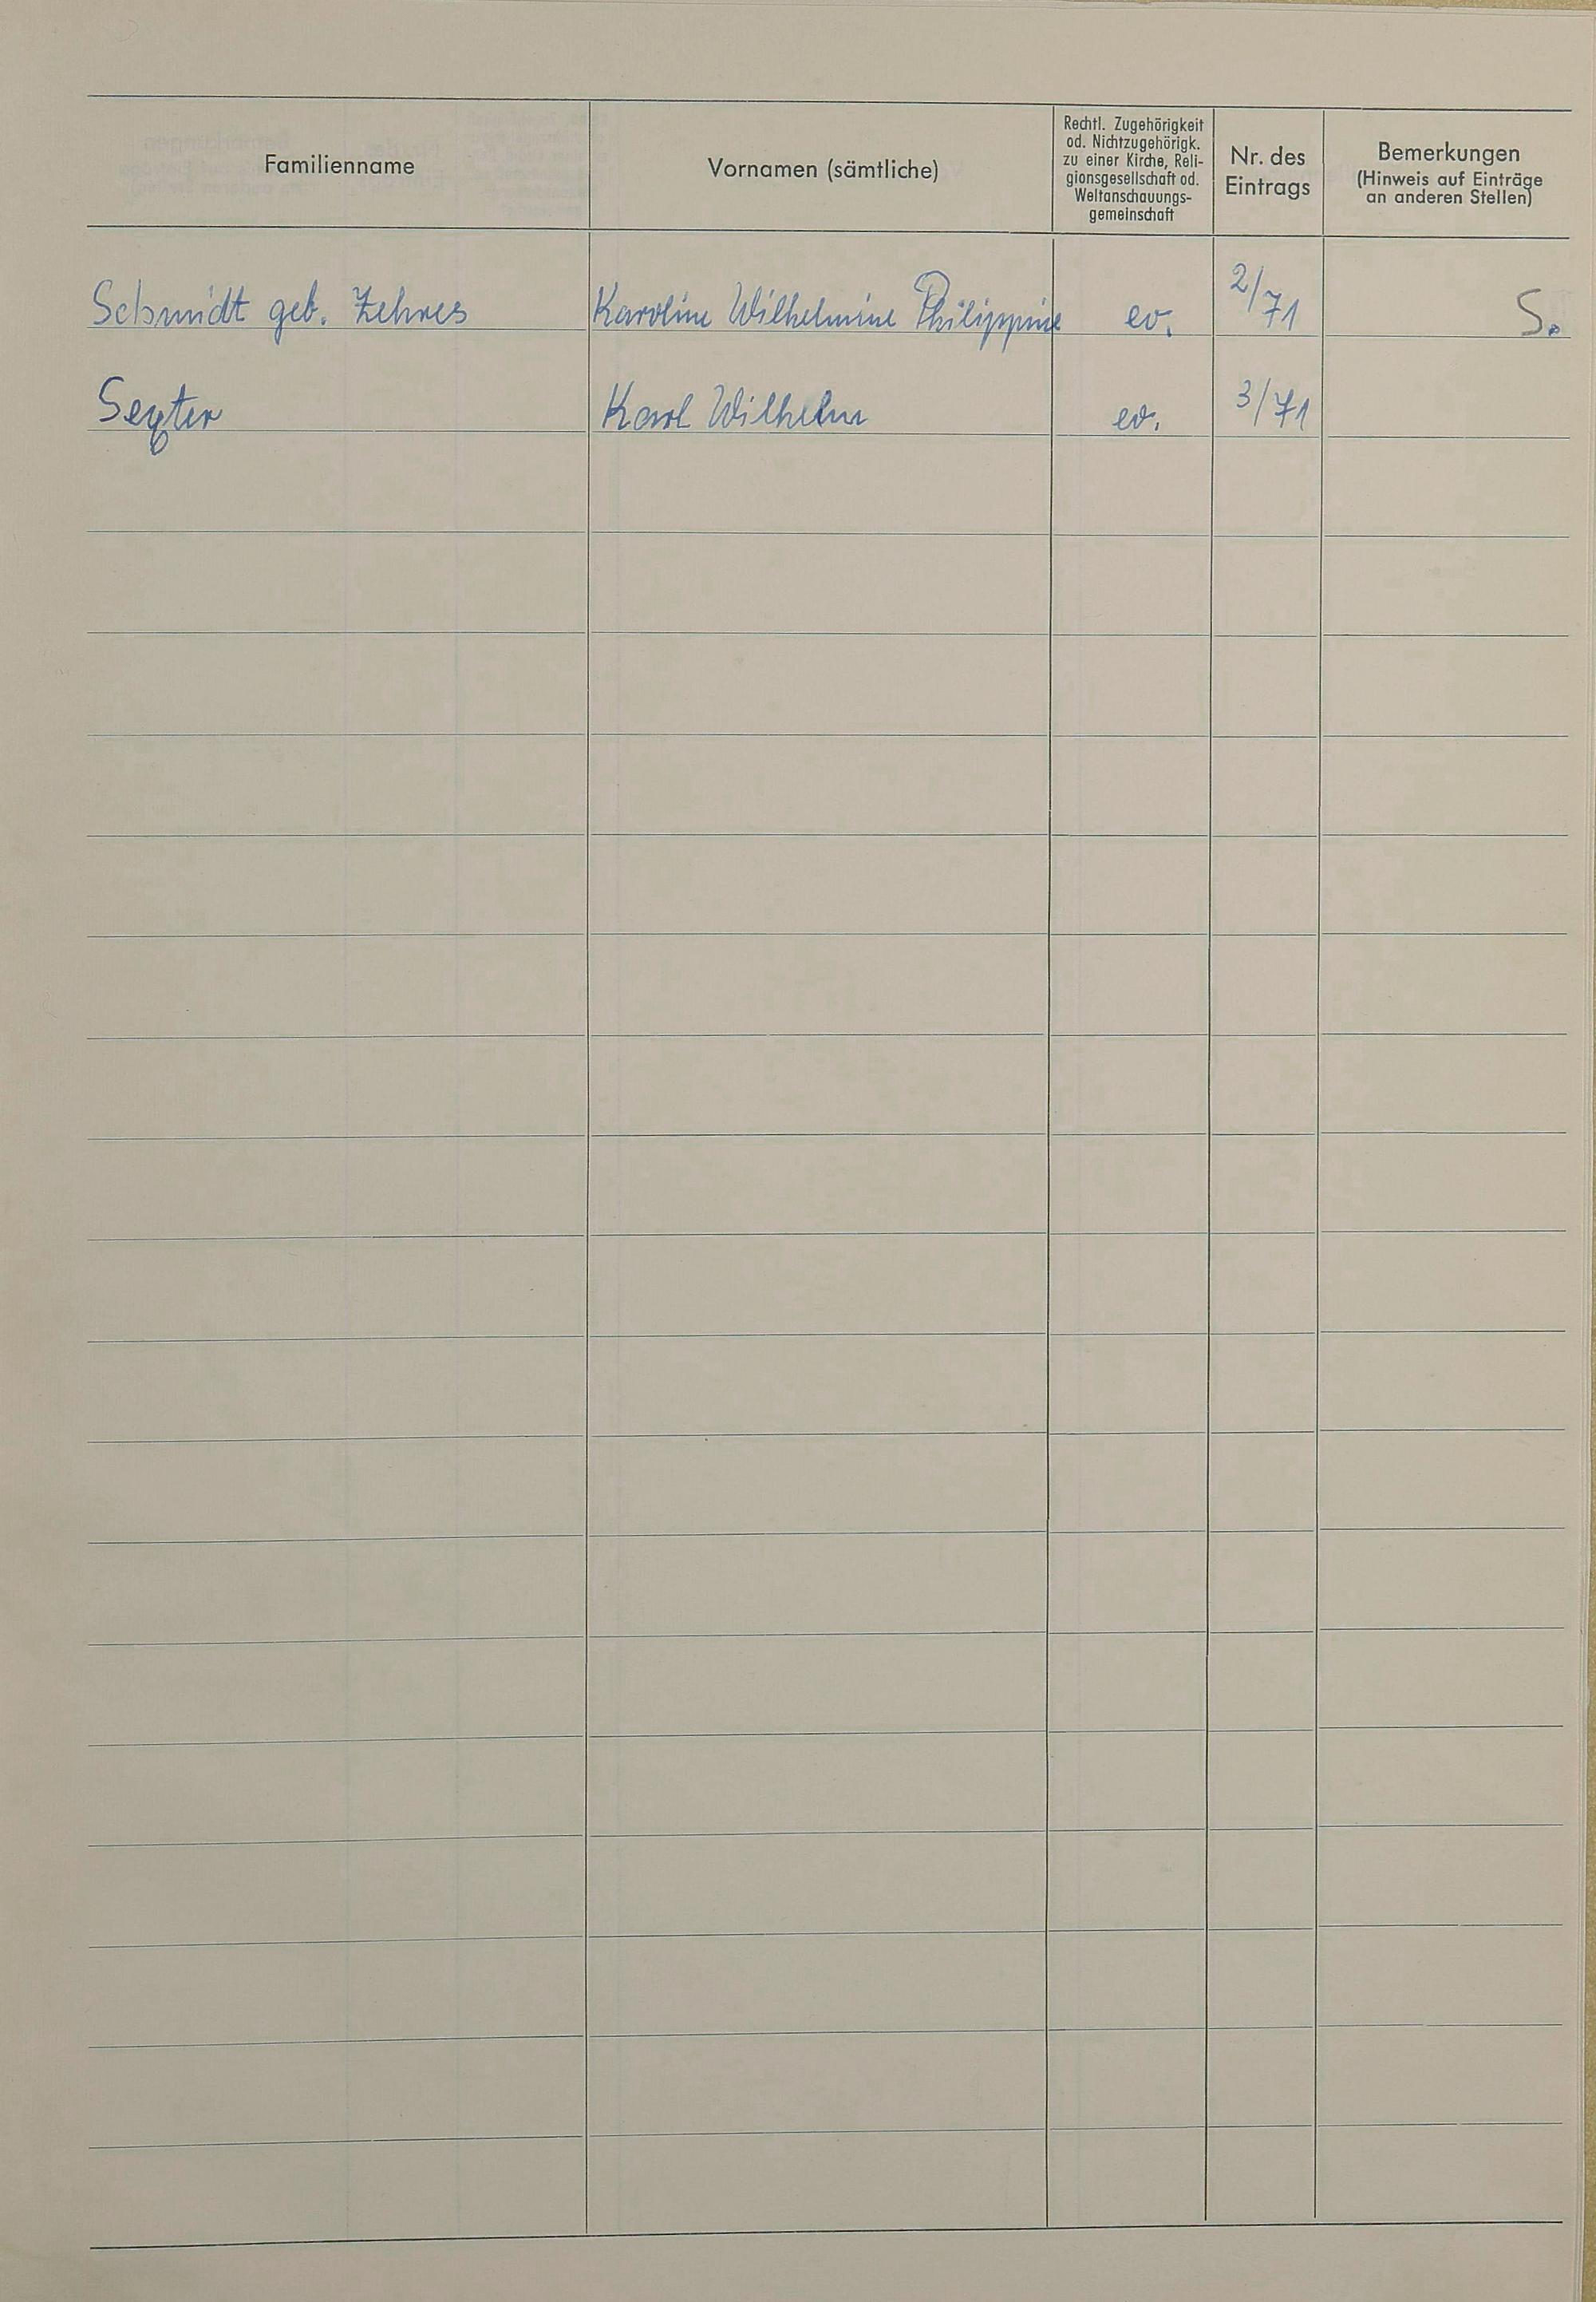 Familienname
Vornamen (sämtliche)
Rechtl. Zugehörigkeit
od. Nichtzugehörigk.
zu einer Kirche, Reli-
gionsgesellschaft od.
Weltanschauungs-
gemeinschaft
Nr. des
Eintrags
Bemerkungen
(Hinweis auf Einträge
an anderen Stellen)
Schmidt geb. Zehres Karoline Wilhelmine Philippine ev. 2/71 S.
Karl Wilhelm ev. 3/71